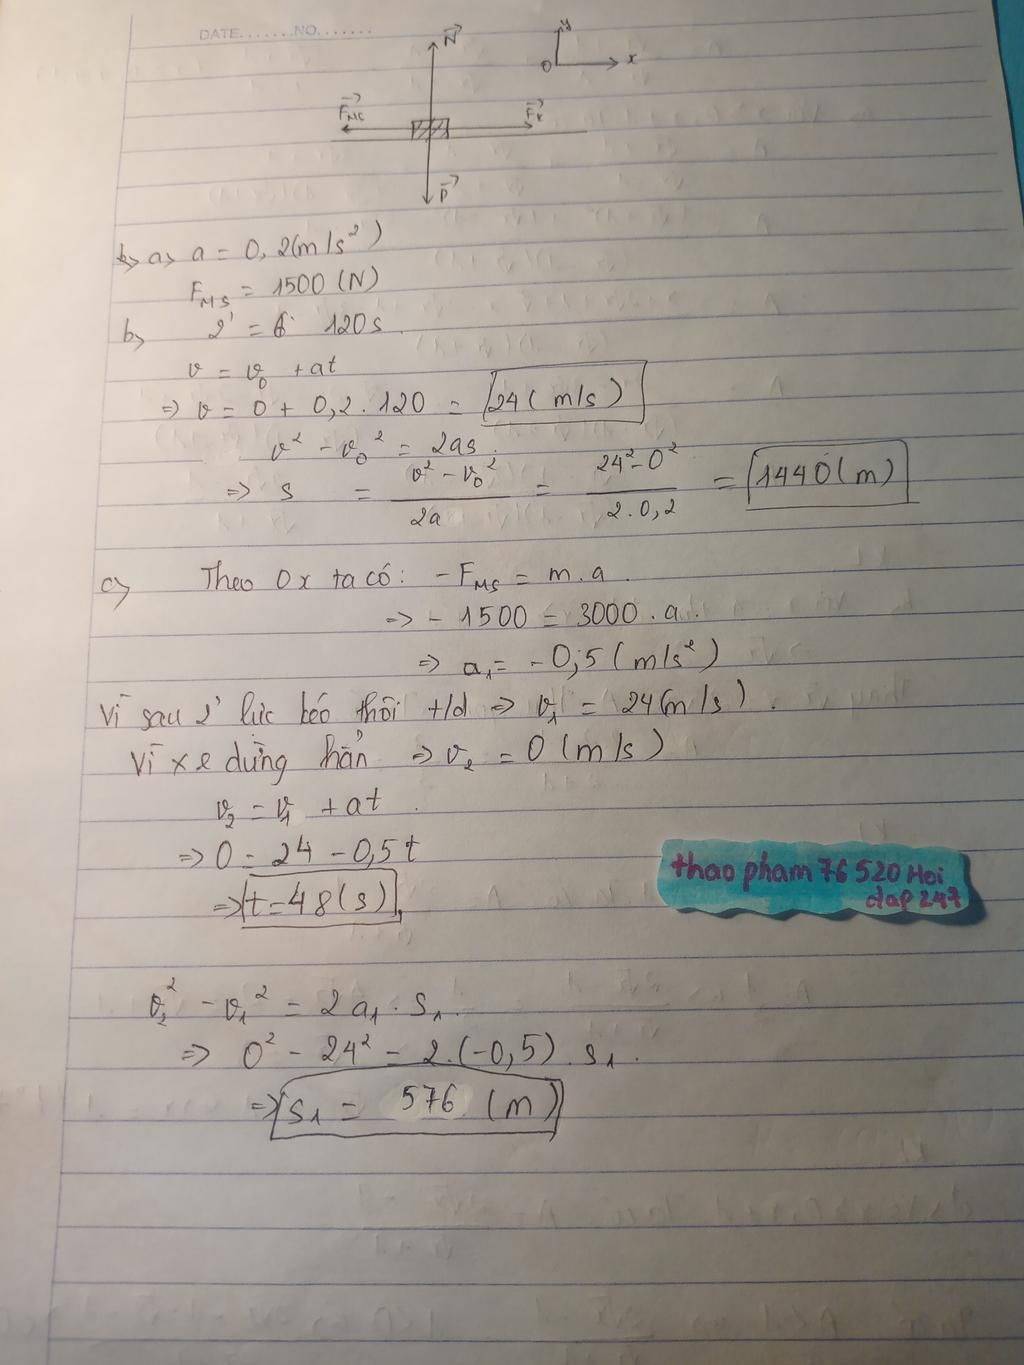 DATE.......NO.......
N
y
O
x
F_MS
F_K
P
b> a> a = 0,2(m/s²)
F_MS = 1500 (N)
b> 2' = 120s.
v = v₀ + at
=> v = 0 + 0,2.120 = 24 (m/s)
v² - v₀² = 2as.
=> s = (v² - v₀²)/2a = (24² - 0²)/2.0,2 = 1440 (m)
c> Theo 0x ta có: -F_MS = m.a.
=> - 1500 = 3000.a.
=> a₁ = -0,5 (m/s²)
Vì sau 2' lực kéo thôi t/d => v₁ = 24(m/s).
Vì xe dừng hẳn => v₂ = 0 (m/s)
v₂ = v₁ + at.
=> 0 = 24 - 0,5t
=> t = 48 (s).
thao pham 76 520 Hoi
dap 247
v₂² - v₁² = 2a₁.s₁.
=> 0² - 24² = 2.(-0,5).s₁.
=> s₁ = 576 (m)